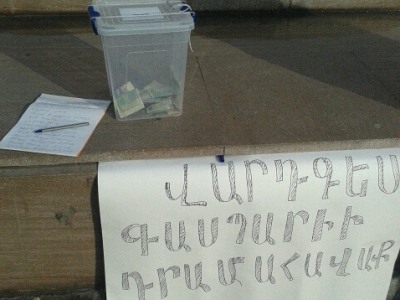 ՎԱՐԴԳԵՍ
ԳԱՍՊԱՐԻԻ
ԴՐԱՄԱՀԱՎԱՔ